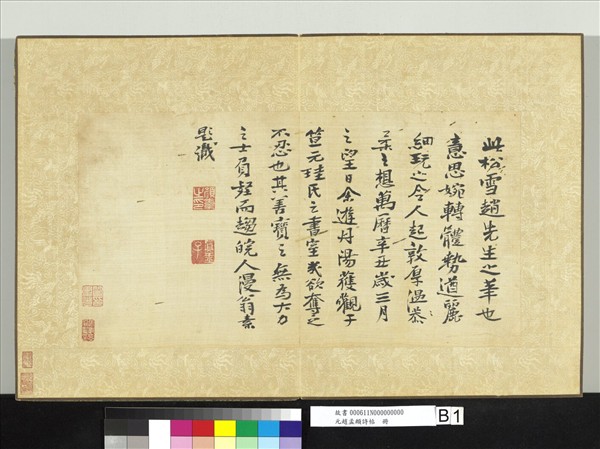 此松雪趙先生之筆也
意思婉轉體勢遒麗
細玩之令人起敦厚溫恭
之想萬曆辛丑歲三月
之望日余遊丹陽獲觀于
笪元珪氏之書室求欲奪之
不忍也其善寶之無為大力
之士負趍而趨皖人漫翁素
題識
故書 000611N000000000
元趙孟頫詩帖 冊
B1